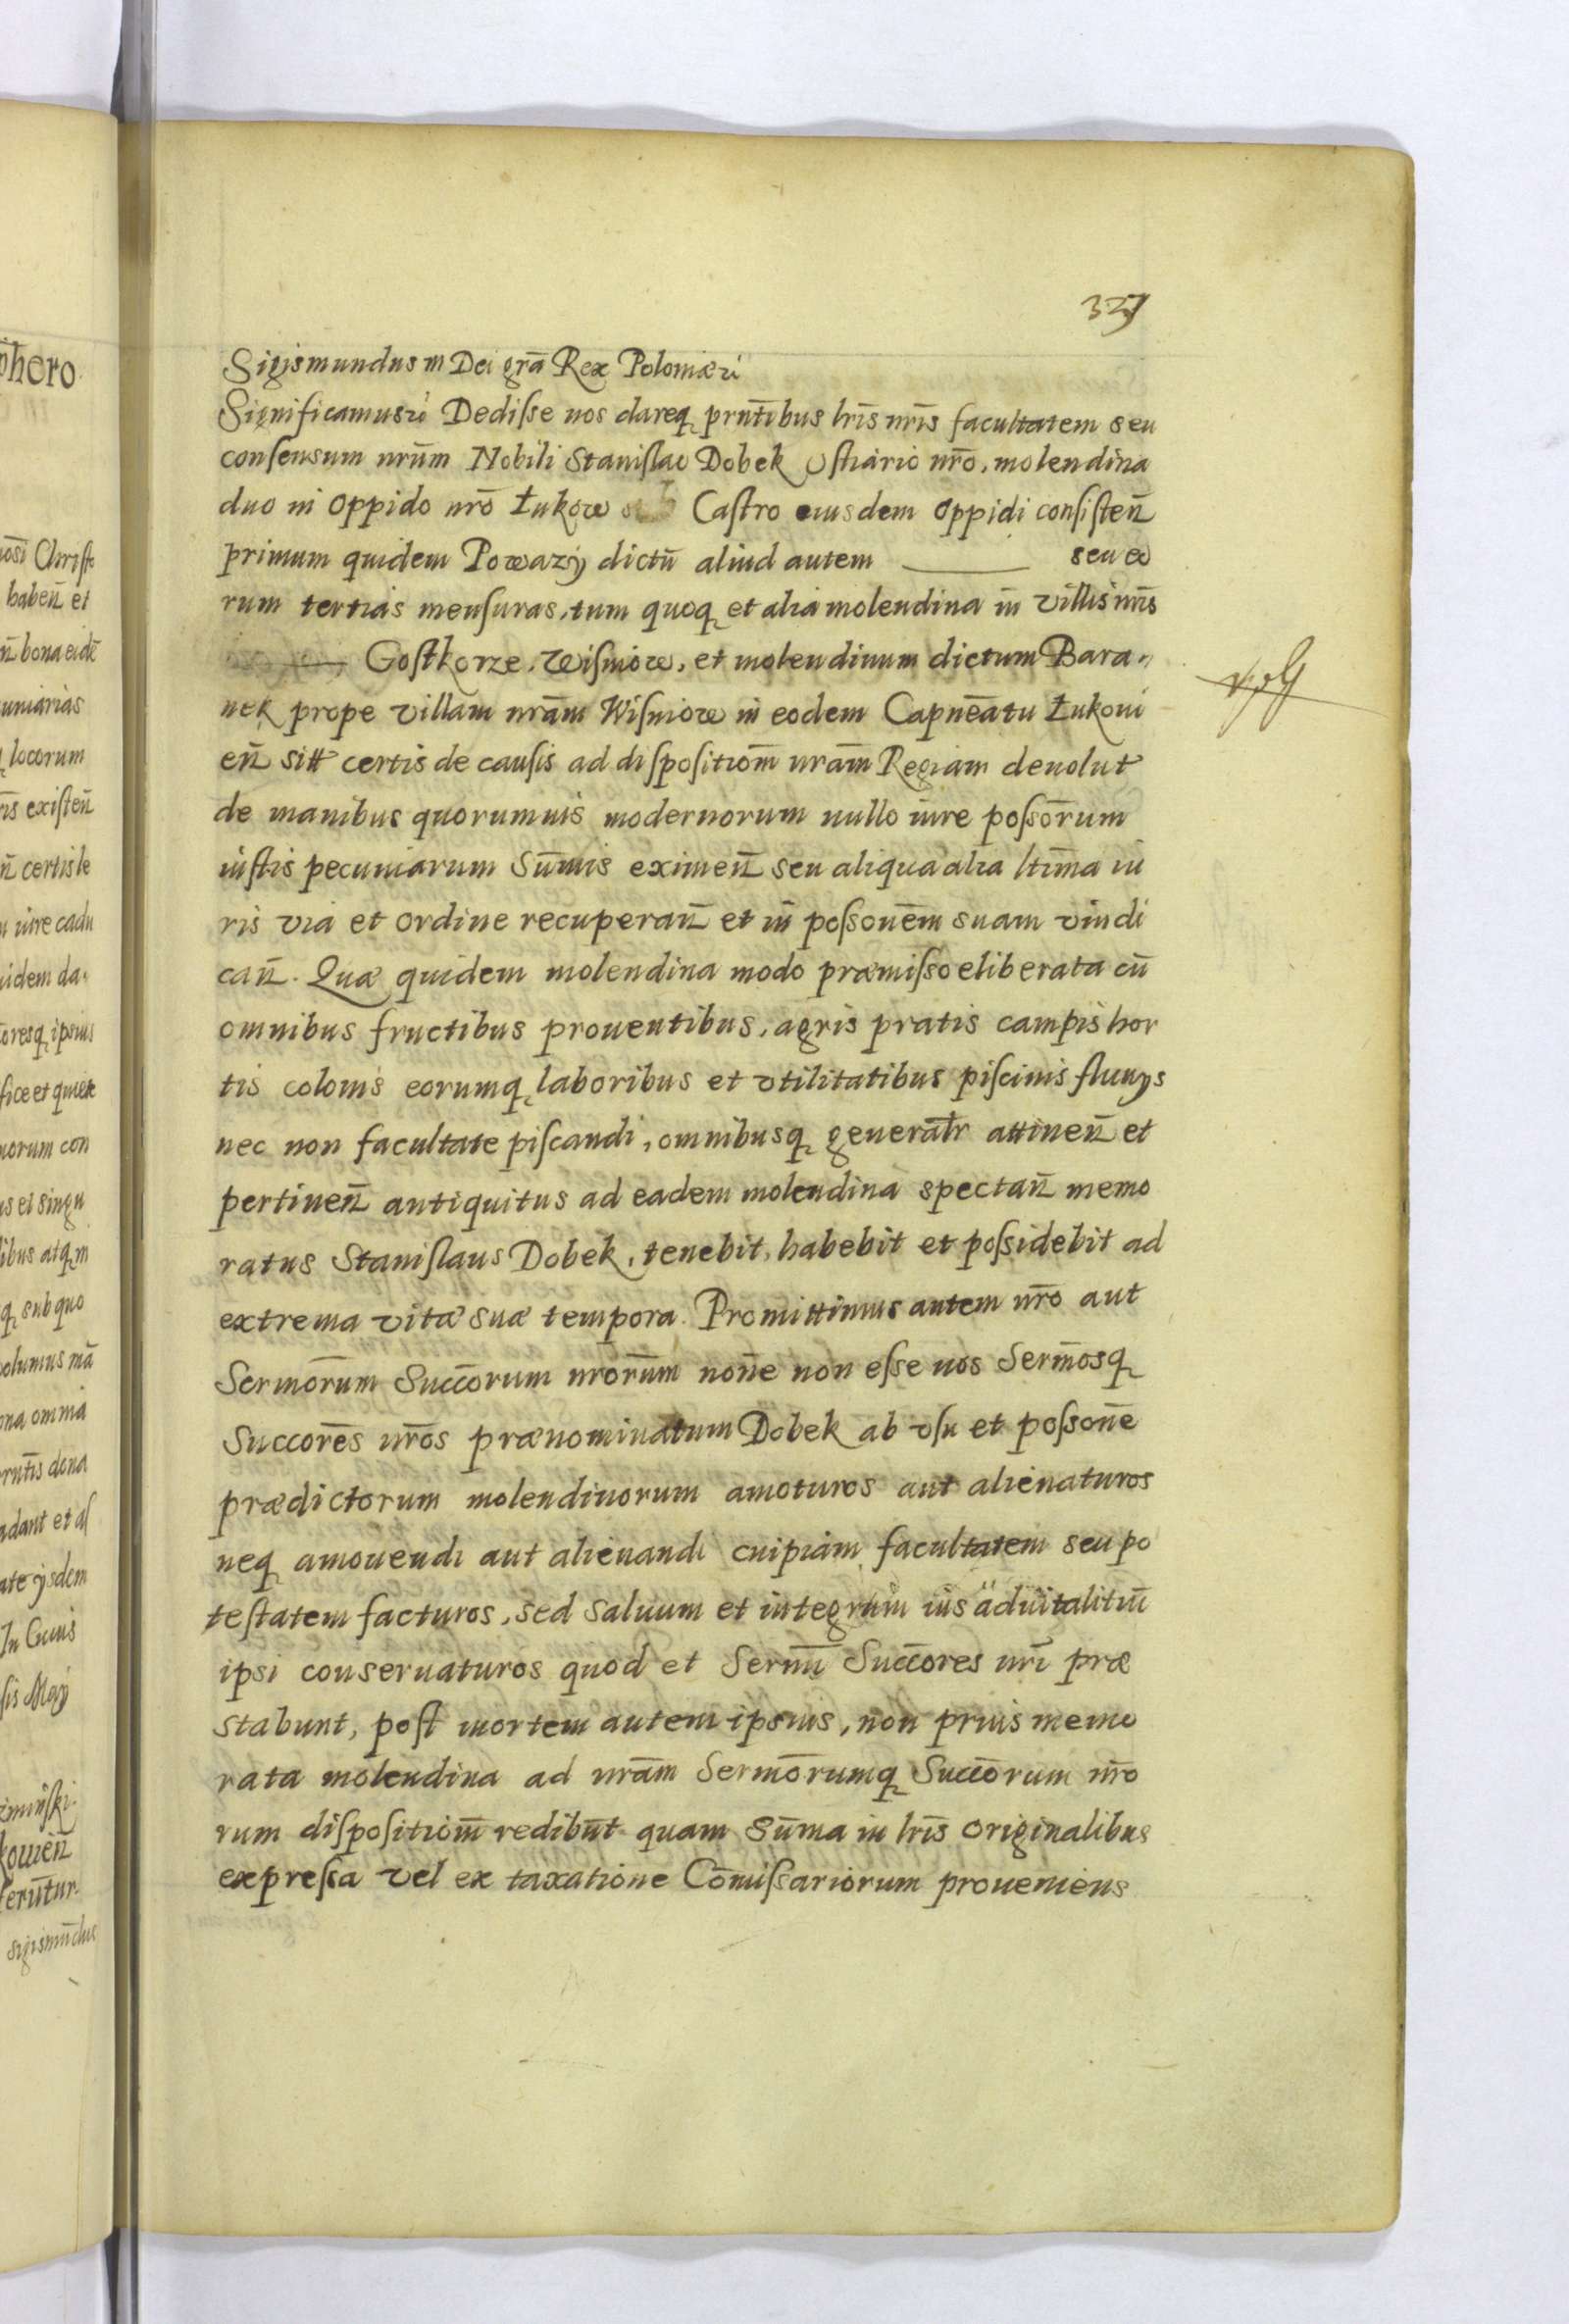 327
Sigismundus III Dei grā Rex Poloniæ
Significamus Dedisse nos dareq prntibus lris nris facultatem seu
consensum nrūm Nobili Stanislao Dobek Ostiario nrō, molendina
duo in Oppido nrō Łukow Castro eiusdem Oppidi consisten̄
primum quidem Powazÿ dictū aliud autem ——— seu eo
rum tertias mensuras, tum quoq et alia molendina in villis nris
Gostkorze, Wisniow, et molendinum dictum Bara-
nek prope villam nrām Wisniow in eodem Capnēatu Łukoui
en̄ sitt certis de causis ad dispositiom̄ nrām Regiam deuolut
de manibus quorumuis modernorum nullo iure possōrum
iustis pecuniarum Sum̄is eximen̄ seu aliqua alia ltīma iu
ris via et ordine recuperan̄ et in possonēm suam vindi
can̄. Quæ quidem molendina modo præmisso eliberata cū
omnibus fructibus prouentibus, agris pratis campis hor
tis colonis eorumq laboribus et vtilitatibus piscinis fluuÿs
nec non facultate piscandi, omnibusq generalr attinen̄ et
pertinen̄ antiquitus ad eadem molendina spectan̄ memo
ratus Stanislaus Dobek, tenebit, habebit et possidebit ad
extrema vitæ suæ tempora. Promittimus autem nrō aut
Sermōrum Succōrum nrorūm noīe non esse nos Sermōsq
Succorēs nrōs prænominatum Dobek ab vsu et possonē
prædictorum molendinorum amoturos aut alienaturos
neq amouendi aut alienandi cuipiam facultatem seu po
testatem facturos, sed saluum et integrum ius aduitalitiū
ipsi conseruaturos quod et Sermī Succōres nrī præ
stabunt, post mortem autem ipsius, non prius memo
rata molendina ad nrām Sermōrumq Succōrum nrō
rum dispositiom̄ redibūnt quam Sūma in lris Originalibus
expressa vel ex taxatione Cōmissariorum proueniens